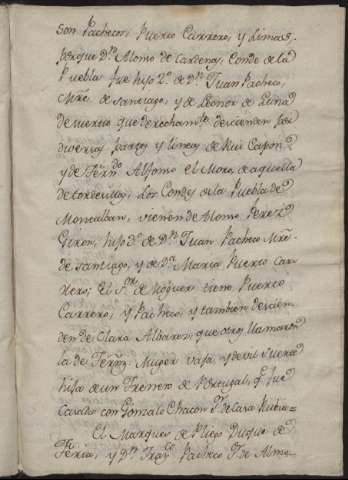 son Pachecon Puerto Carrero, y Limas,
porque Dn. Alonso de Cardenas, Conde de la
Puebla fue hijo 2º de Dn. Juan Pacheco,
Mre. de Santiago, y de Leonor de Luna
de suerte que derechamte. descienden por
diversas partes y lineas de Rui Capon
y de Ferndo. Alfonso el Moro de aquella
de tordesillas, Los Condes de la Puebla de
Montalban, vienen de Alonso Perez
Giron, hijo 3º de Dn. Juan Pacheco Mre.
de Santiago, y de Da. Maria Puerto Car
rero; El Sr. de Moguer tiene Puerto
Carrero, y Pacheco, y tambien descien
den de Clara Albarez, que otros llamaron
la de Ferrz. Muger vaja y de vil suerte
hija de un Frenero de Portugal, q. fue
Casada con Gonzalo Chacon Sr. de Casa Rubia=
El Marques de Pliego Duque de
Feria, y Dn. Franco. Pacheco Sr. de Alme